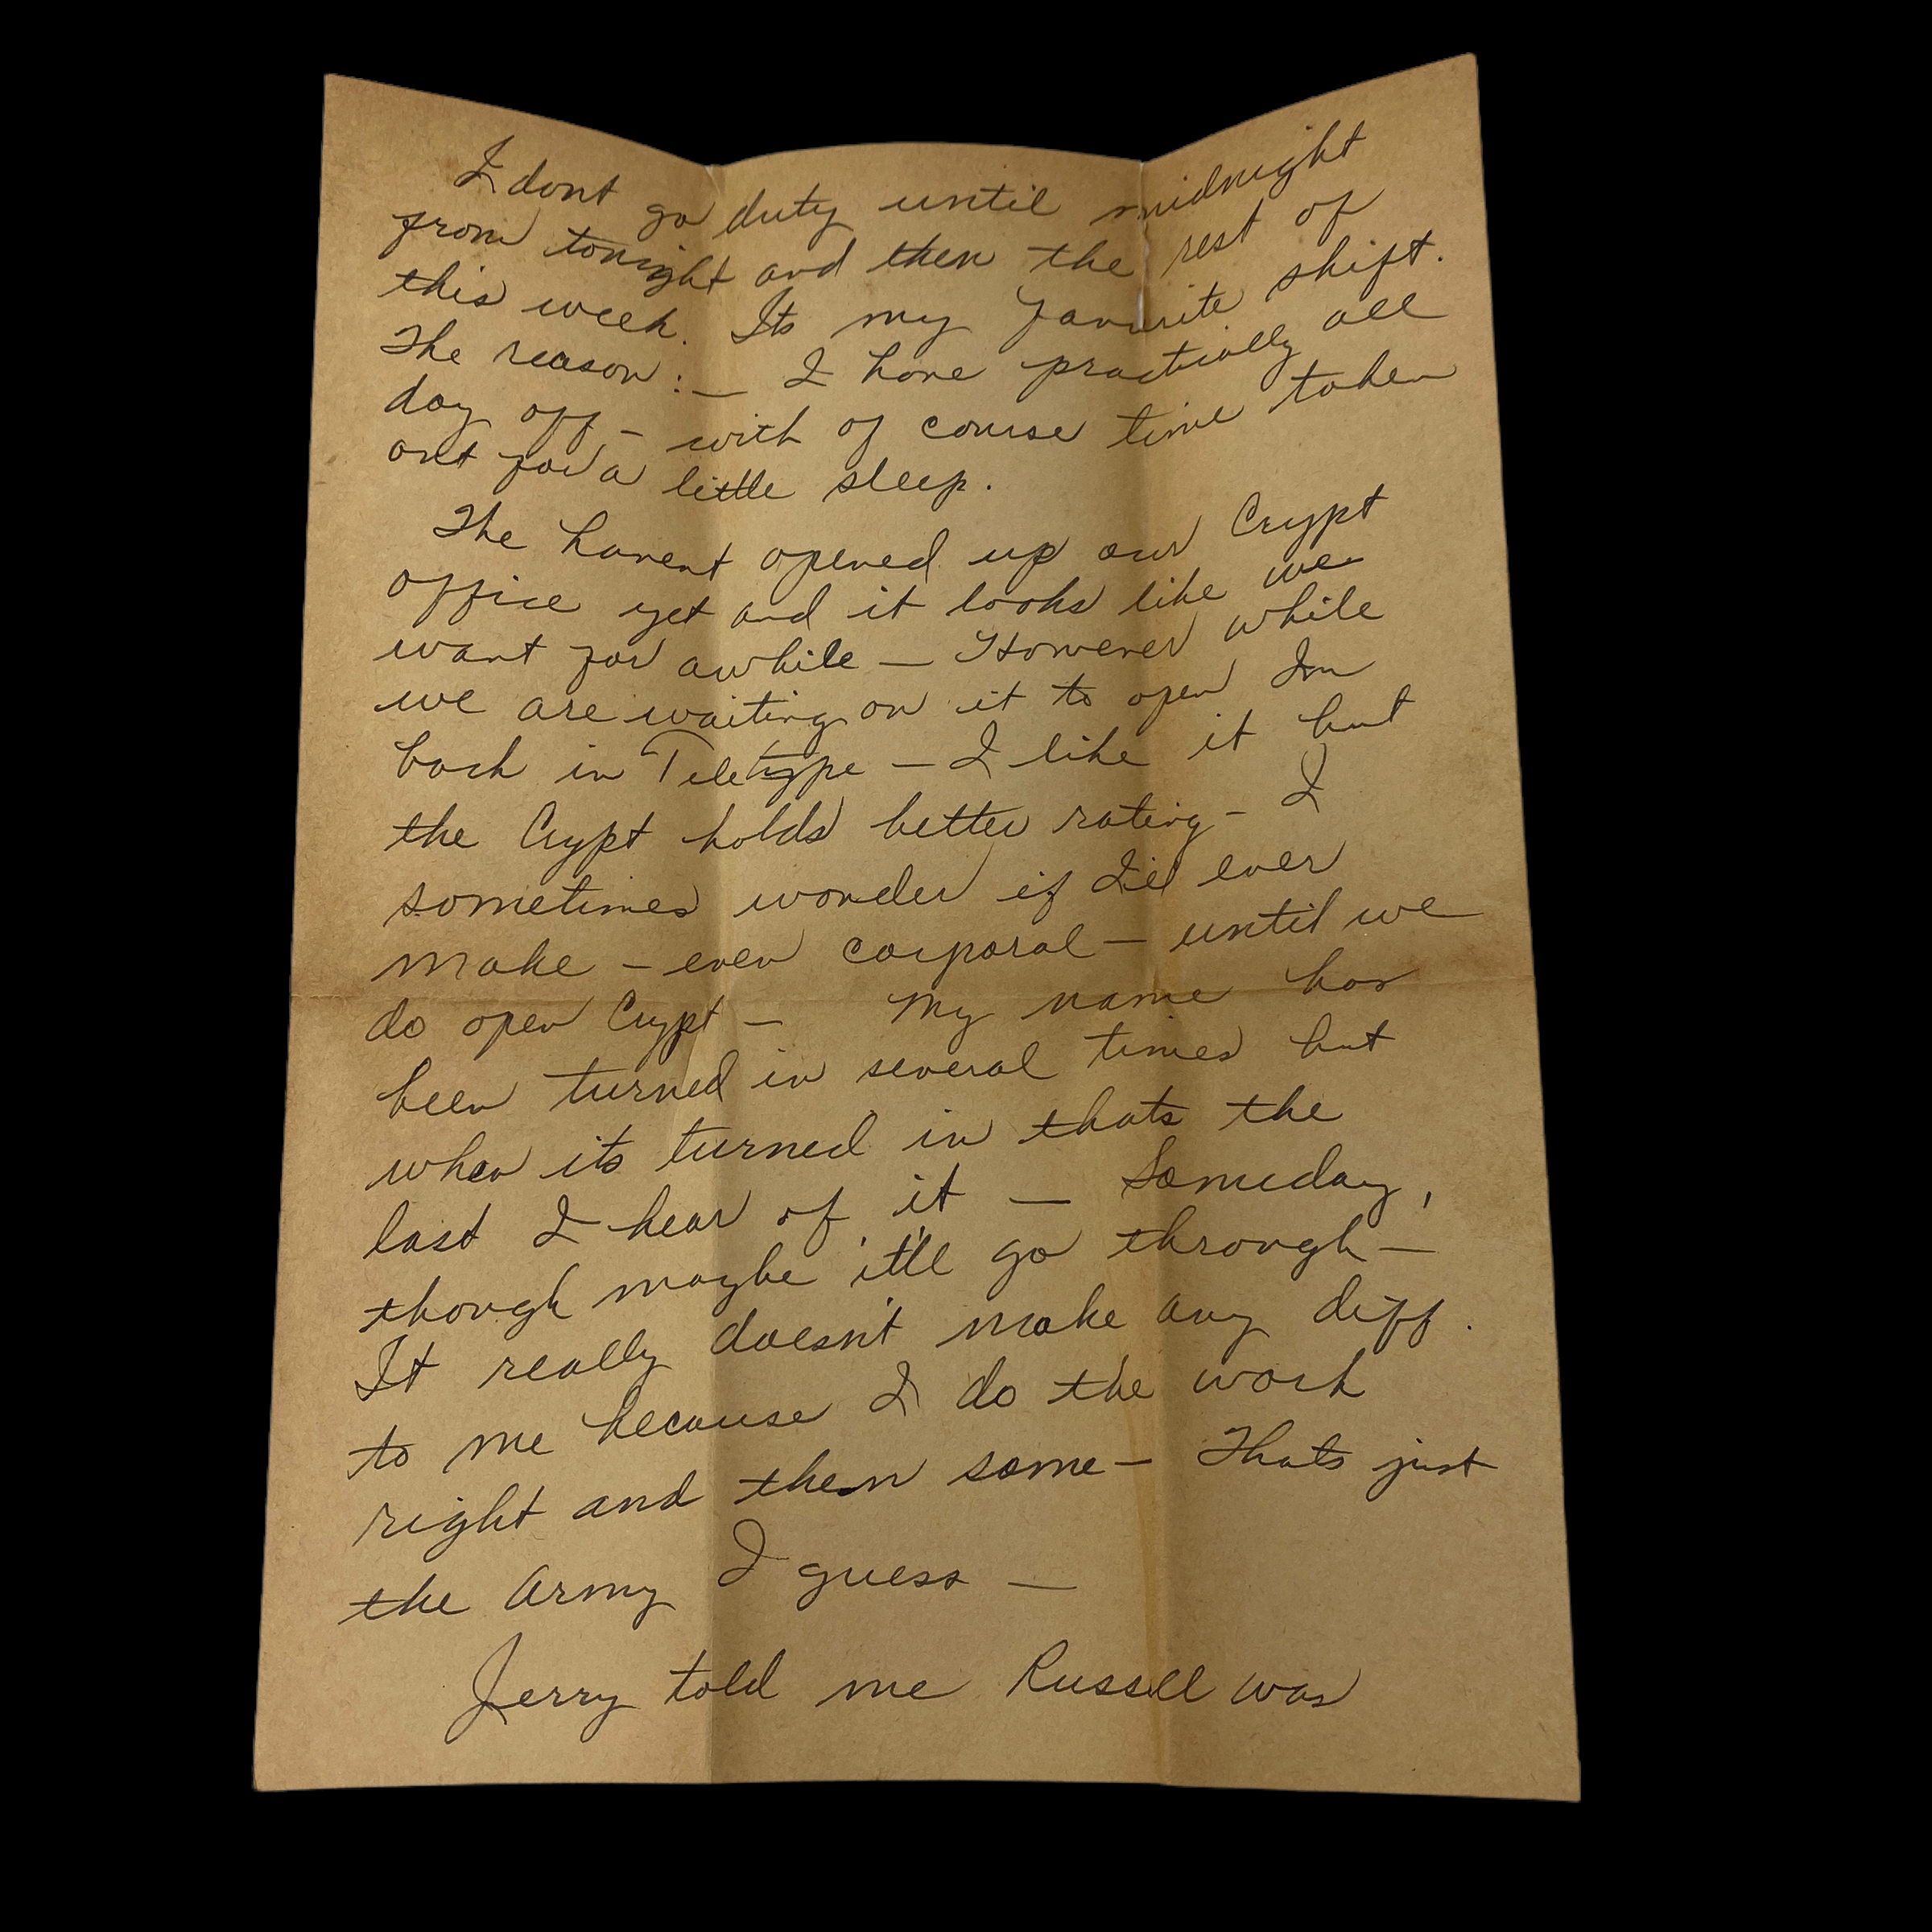 I dont go duty until midnight
from tonight and then the rest of
this week. Its my favorite shift.
The reason :— I have practically all
day off – with of course time taken
out for a little sleep.
The havent opened up our Crypt
office yet and it looks like we
want for awhile — However while
we are waiting on it to open Im
back in Teletype — I like it but
the Crypt holds better rating – I
sometimes wonder if I'll ever
make – even corporal — until we
do open Crypt — My name has
been turned in several times but
when its turned in thats the
last I hear of it — Someday,
though maybe it'll go through —
It really doesn't make any diff.
to me because I do the work
right and then some — Thats just
the Army I guess —
Jerry told me Russell was